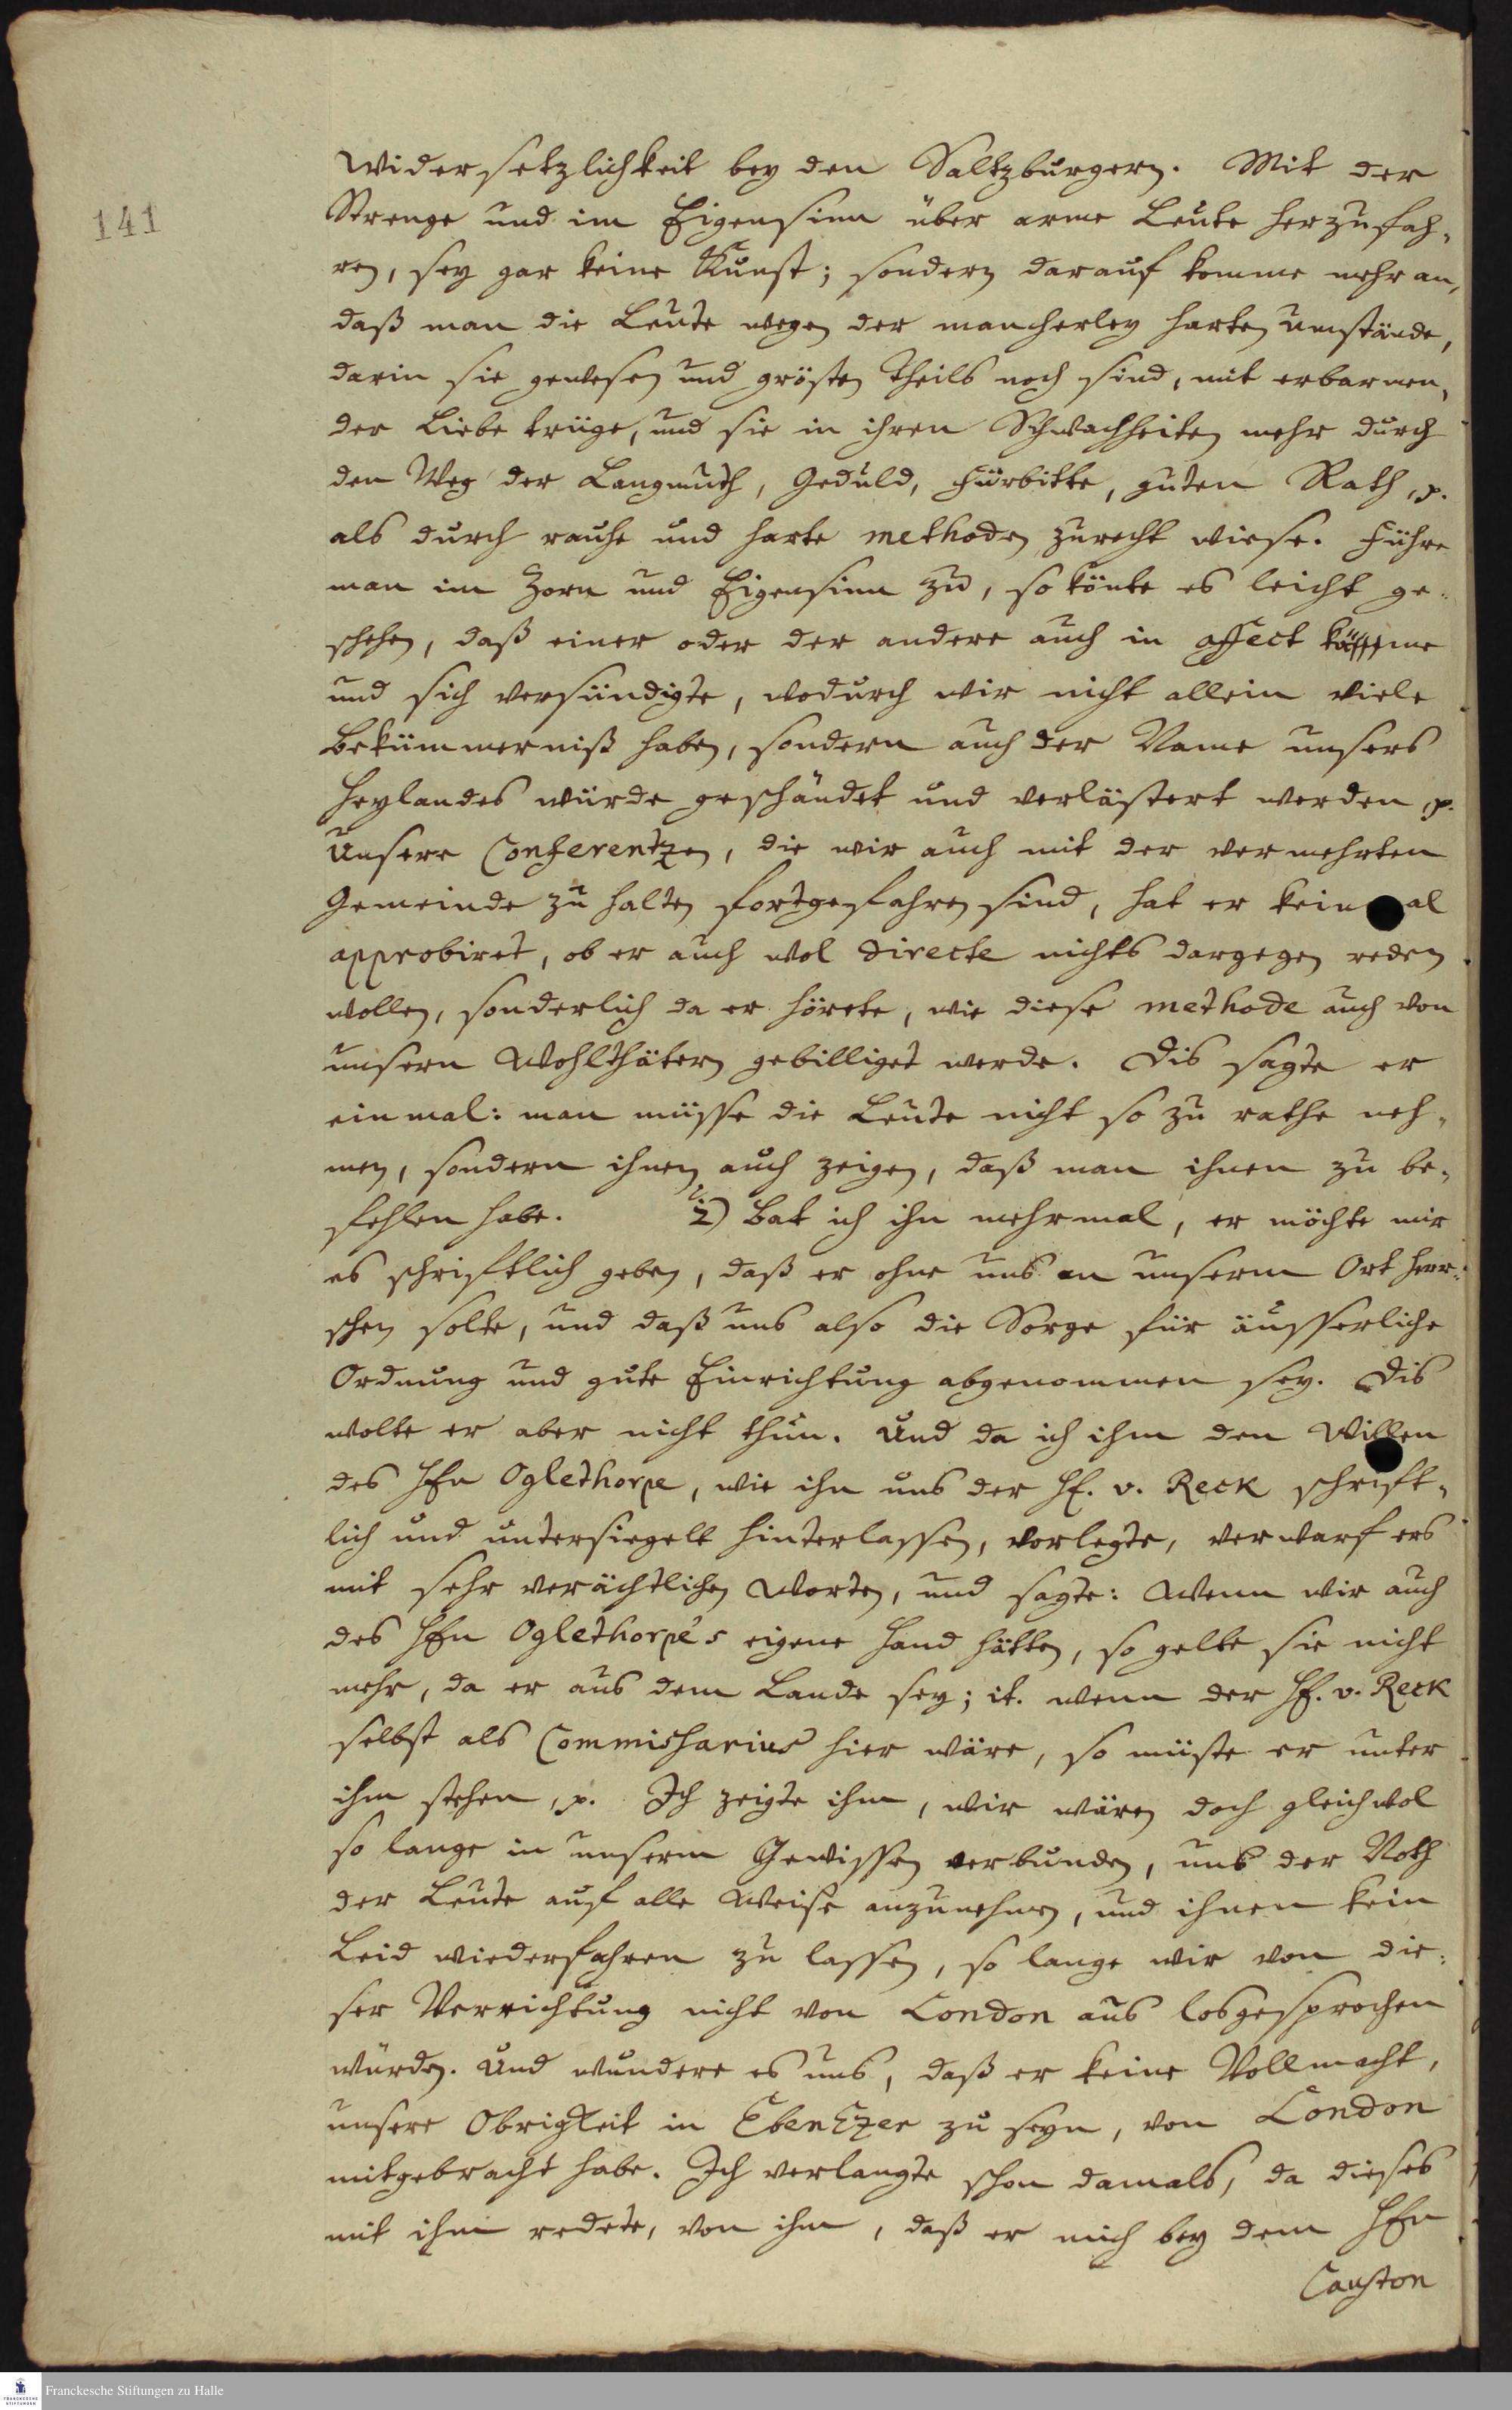 141
Widersetzlichkeit bey den Saltzburgern. Mit der
Strenge und im Eigensinn über arme Leute herzufah-
ren, sey gar keine Kunst; sondern darauf komme mehr an,
daß man die Leute wegen der mancherley harten Umstände,
darin sie gewesen und grösten Theils noch sind, mit erbarmen-
der Liebe trüge, und sie in ihren Schwachheiten mehr durch
den Weg der Langmuth, Geduld, Fürbitte, guten Rath, p.
als durch rauhe und harte methoden zurecht wiese. Führe
man im Zorn und Eigensinn zu, so könte es leicht ge-
schehen, daß einer oder der andere auch in affect käme
und sich versündigte, wodurch wir nicht allein viele
Bekümmerniß haben, sondern auch der Name unsers
Heylandes würde geschändet und verlästert werden p.
Unsere Conferentzen, die wir auch mit der vermehrten
Gemeinde zu halten fortgefahren sind, hat er kein al
approbiret, ob er auch wol directe nichts dargegen reden
wollen, sonderlich da er hörete, wie diese methode auch von
unsern Wohlthätern gebilliget werde. Dis sagte er
einmal: man müsse die Leute nicht so zu rathe neh-
men, sondern ihnen auch zeigen, daß man ihnen zu be-
fehlen habe. 2) Bat ich ihn mehrmal, er möchte mir
es schriftlich geben, daß er ohne uns an unserm Ort herr-
schen solte, und daß uns also die Sorge für äusserliche
Ordnung und gute Einrichtung abgenommen sey. Dis
wolte er aber nicht thun. Und da ich ihm den Willen
des HEn Oglethorpe, wie ihn uns der HE. v. Reck schrift-
lich und untersiegelt hinterlassen, vorlegte, verwarf ers
mit sehr verächtlichen Worten, und sagte: Wenn wir auch
des HEn Oglethorpe's eigene Hand hätten, so gelte sie nicht
mehr, da er aus dem Lande sey; it. wenn der HE. v. Reck
selbst als Commissarius hier wäre, so müste er unter
ihm stehen, p. Ich zeigte ihm, wir wären doch gleichwol
so lange in unserm Gewissen verbunden, uns der Noth
der Leute auf alle Weise anzunehmen, und ihnen kein
Leid wiederfahren zu lassen, so lange wir von die-
ser Verrichtung nicht von London aus losgesprochen
würden. Und wundere es uns, daß er keine Vollmacht,
unsere Obrigkeit in EbenEzer zu seyn, von London
mitgebracht habe. Ich verlangte schon damals, da dieses
mit ihm redete, von ihm, daß er mich bey dem HEn
Causton
Franckesche Stiftungen zu Halle